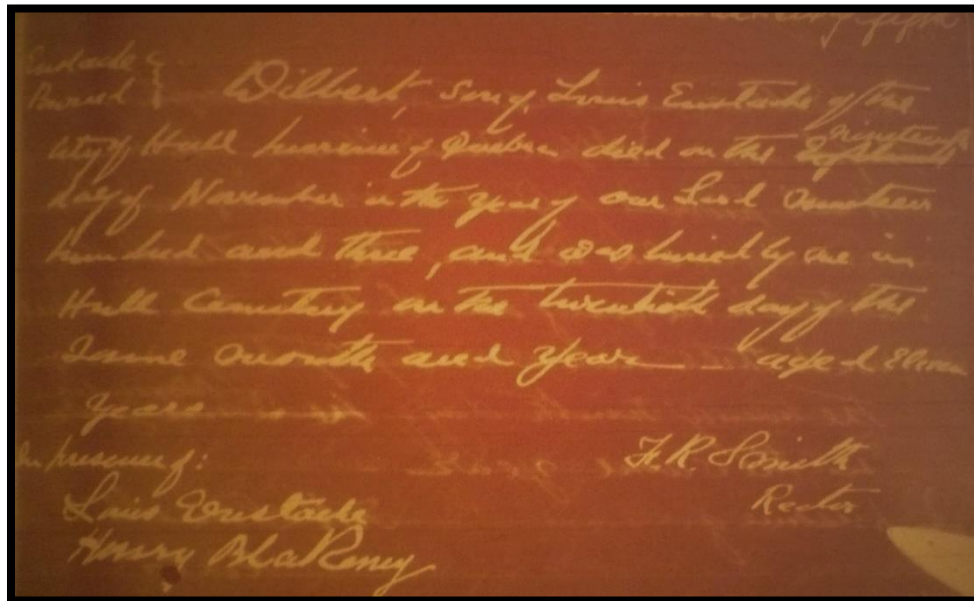 Eustache
Buried } Wilbert, son of Louis Eustache of the
city of Hull province of Quebec died on the nineteenth
day of November in the year of our Lord nineteen
hundred and three, and was buried by me in
Hull Cemetery on the twentieth day of the
same month and year - aged eleven
years
In presence of:
F. R. Smith
Rector
Louis Eustache
Henry Blakeney